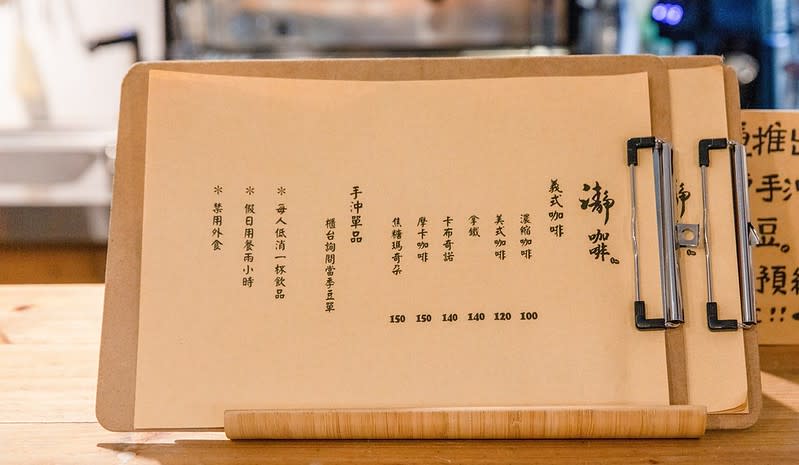 瀞咖啡
義式咖啡
濃縮咖啡 100
美式咖啡 120
拿鐵 140
卡布奇諾 140
摩卡咖啡 150
焦糖瑪奇朵 150
手沖單品
櫃台詢問當季豆單
＊每人低消一杯飲品
＊假日用餐兩小時
＊禁用外食
瀞
推出
手沖
豆。
預
!!